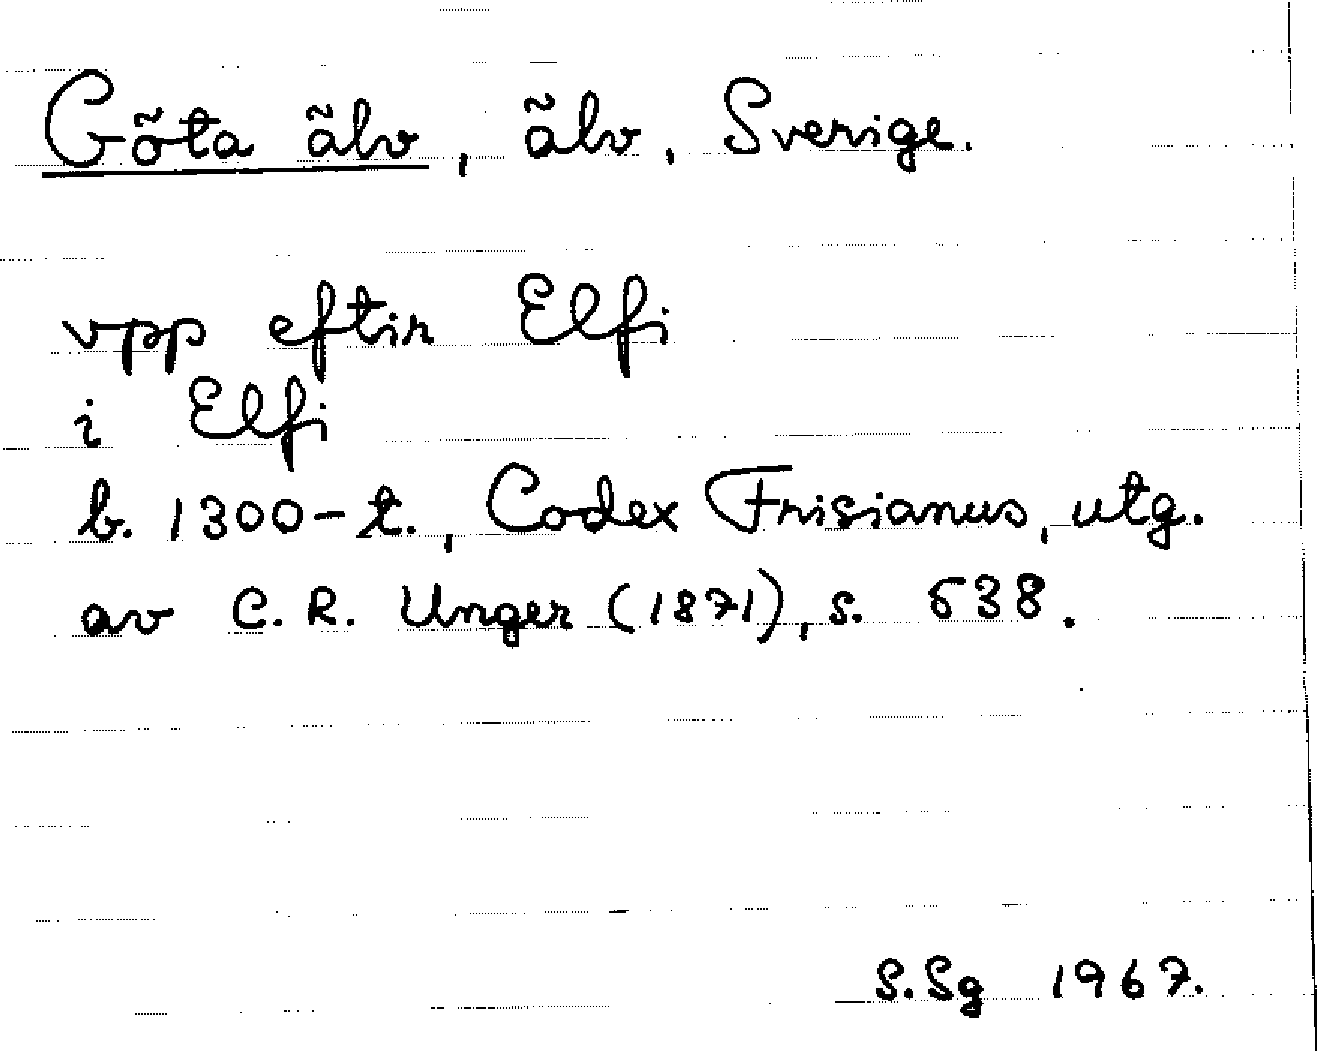 Göta älv, älv, Sverige.
vpp eftir Elfi
i Elfi
b. 1300-t., Codex Frisianus, utg.
av C. R. Unger (1871), s. 538.
S. Sg 1967.